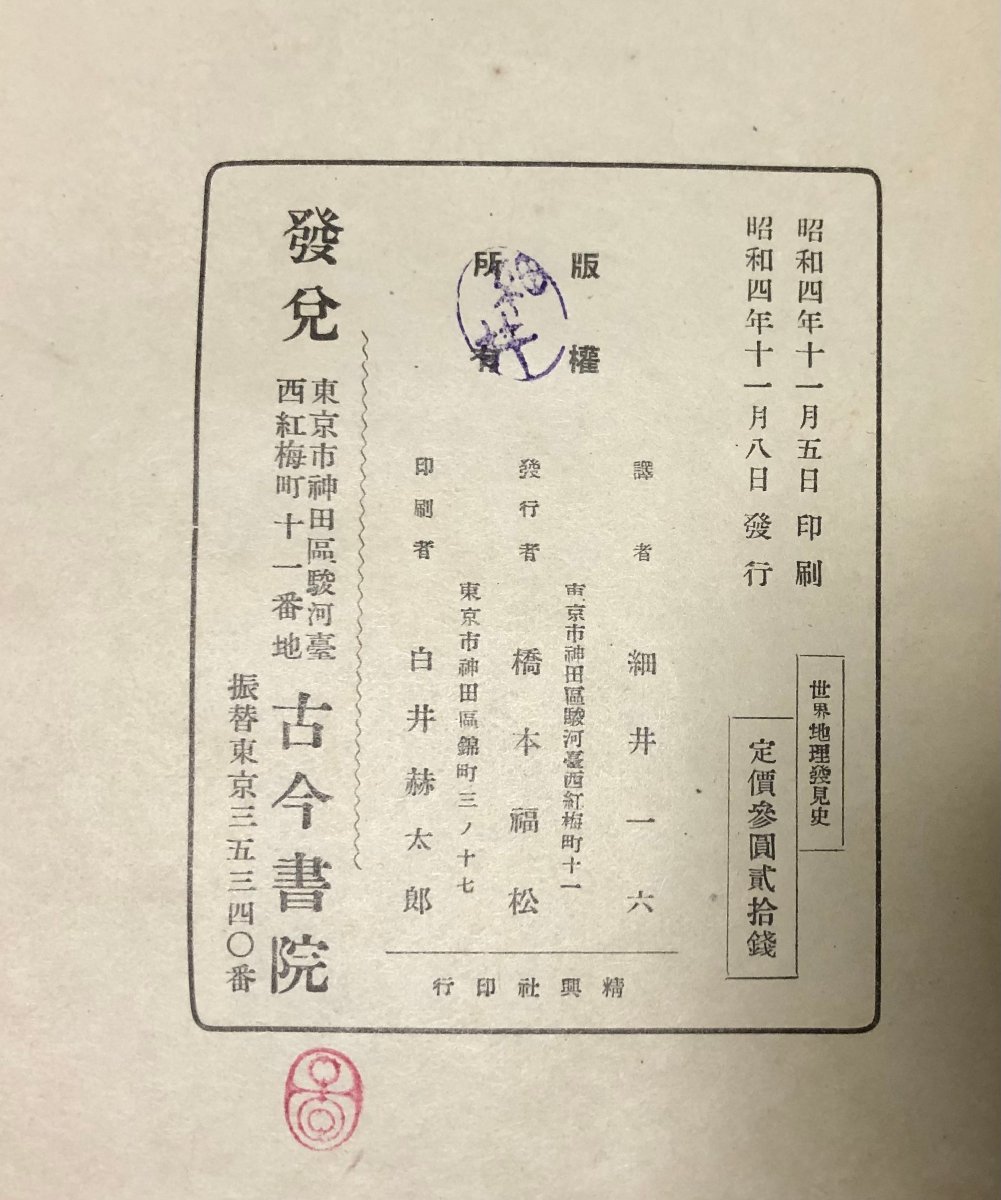 昭和四年十一月五日印刷
昭和四年十一月八日發行
世界地理發見史
定價參圓貳拾錢
版權
所有
譯者 細井一六
東京市神田區駿河臺西紅梅町十一
發行者 橋本福松
東京市神田區錦町三ノ十七
印刷者 白井赫太郎
精興社印行
發兌
東京市神田區駿河臺
西紅梅町十一番地
古今書院
振替東京三五三四〇番